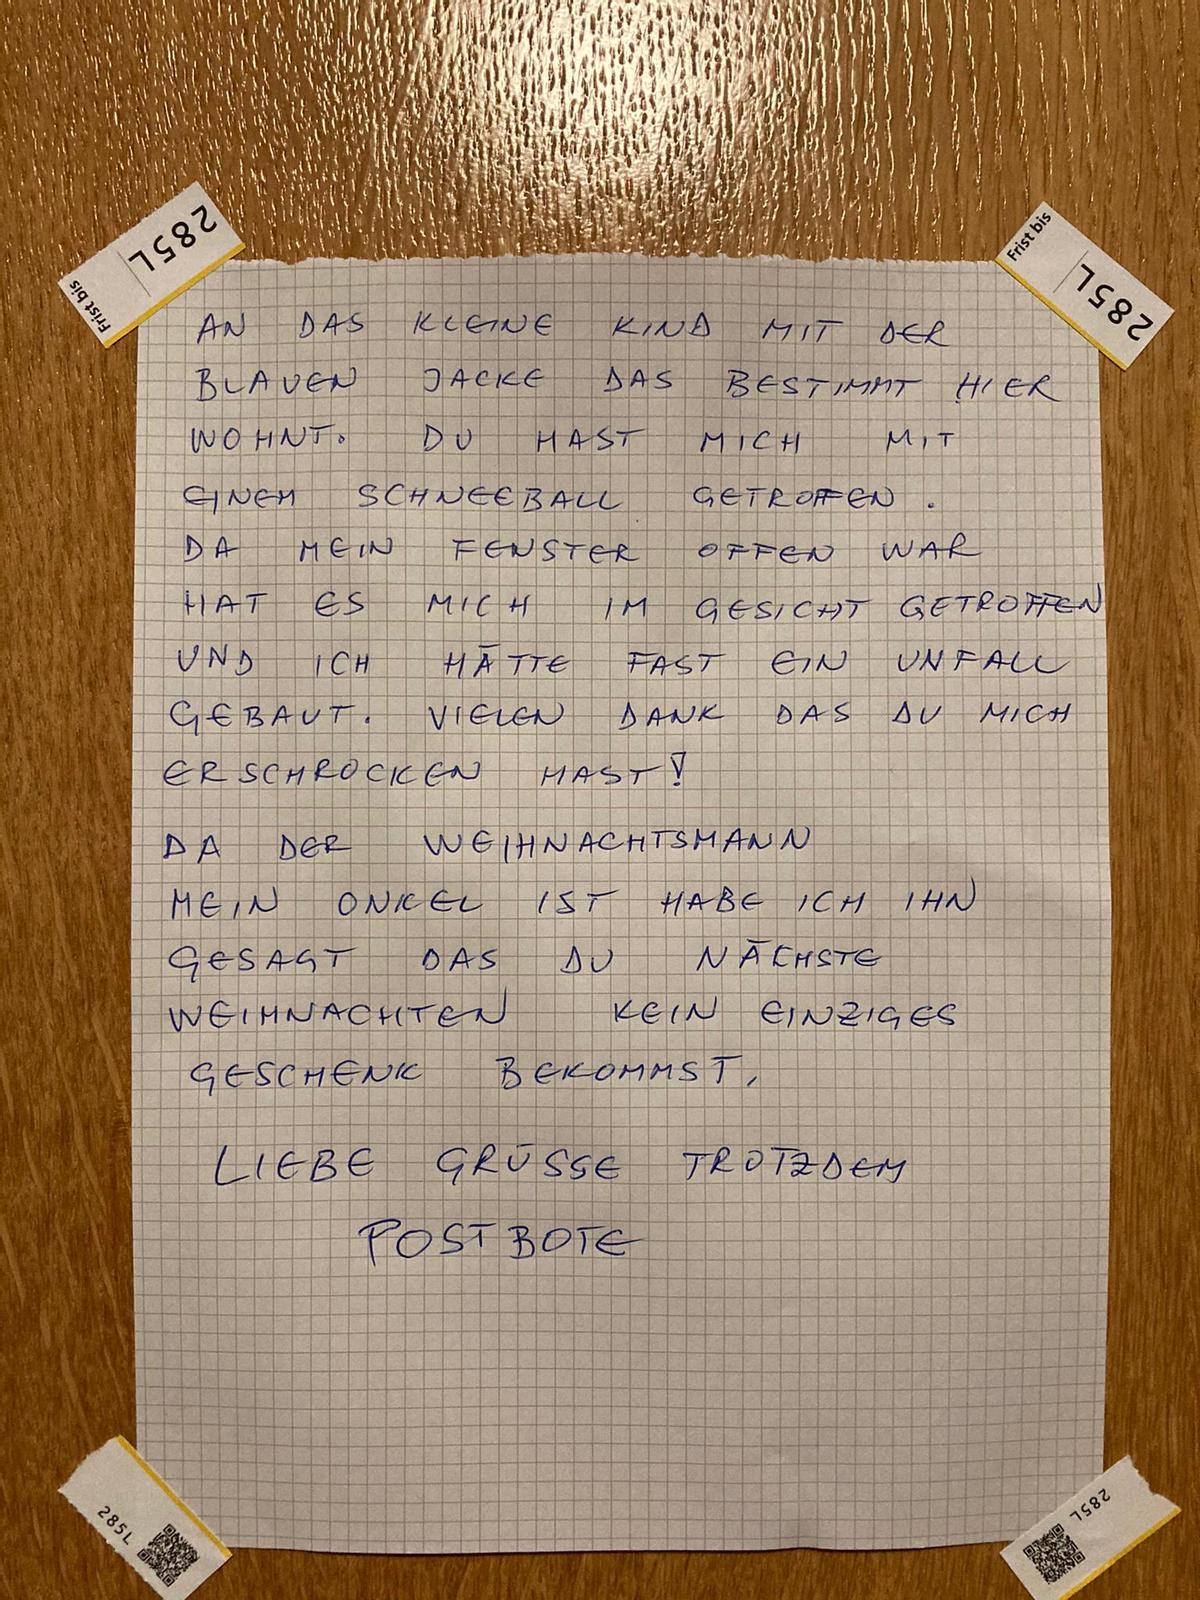 Frist bis 285L
Frist bis 285L
AN DAS KLEINE KIND MIT DER
BLAUEN JACKE DAS BESTIMMT HIER
WOHNT. DU HAST MICH MIT
EINEM SCHNEEBALL GETROFFEN.
DA MEIN FENSTER OFFEN WAR
HAT ES MICH IM GESICHT GETROFFEN
UND ICH HÄTTE FAST EIN UNFALL
GEBAUT. VIELEN DANK DAS DU MICH
ERSCHROCKEN HAST!
DA DER WEIHNACHTSMANN
MEIN ONKEL IST HABE ICH IHN
GESAGT DAS DU NÄCHSTE
WEIHNACHTEN KEIN EINZIGES
GESCHENK BEKOMMST.
LIEBE GRÜSSE TROTZDEM
POSTBOTE
285L
285L